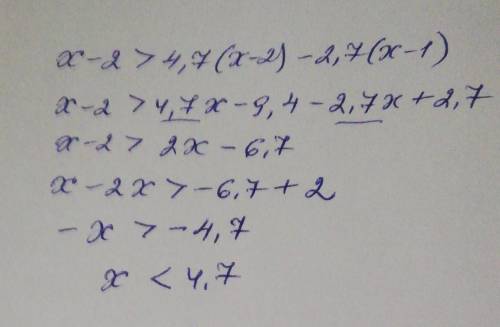 x-2 > 4,7(x-2) - 2,7(x-1)
x-2 > 4,7x - 9,4 - 2,7x + 2,7
x-2 > 2x - 6,7
x - 2x > -6,7 + 2
-x > -4,7
x < 4,7